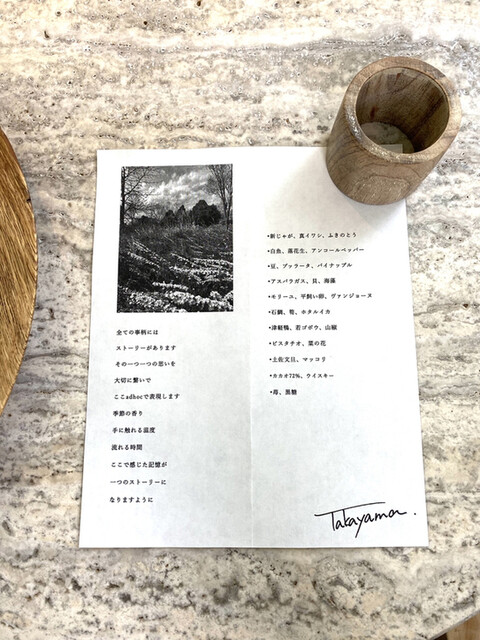 全ての事柄には
ストーリーがあります
その一つ一つの思いを
大切に繋いで
ここadhocで表現します
季節の香り
手に触れる温度
流れる時間
ここで感じた記憶が
一つのストーリーに
なりますように
•新じゃが、真イワシ、ふきのとう
•白魚、落花生、アンコールペッパー
•豆、ブッラータ、パイナップル
•アスパラガス、貝、海藻
•モリーユ、平飼い卵、ヴァンジョーヌ
•石鯛、筍、ホタルイカ
•津軽鴨、若ゴボウ、山椒
•ピスタチオ、菜の花
•土佐文旦、マッコリ
•カカオ72%、ウイスキー
•苺、黒糖
Takayama.